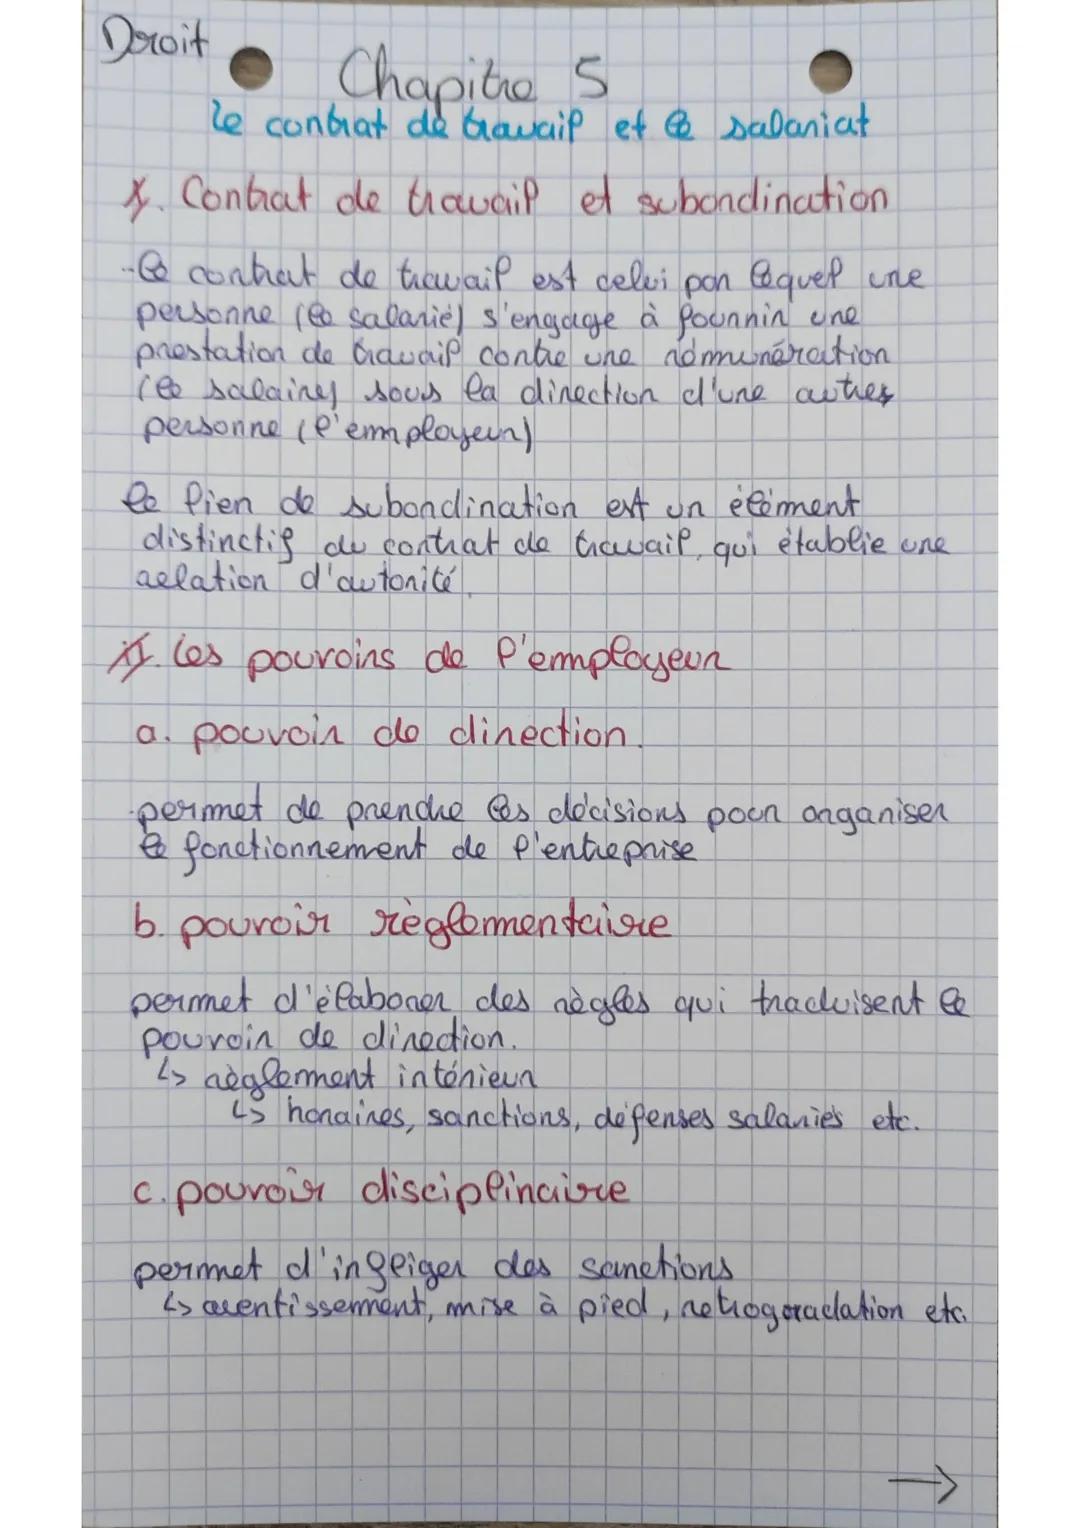 Droit
Chapitre 5
Le contrat de travail et le salariat
I. Contrat de travail et subordination
-Le contrat de travail est celui par lequel une
personne (le salarié) s'engage à fournir une
prestation de travail contre une rémunération
(le salaire) sous la direction d'une autres
personne (l'employeur)
le lien de subordination est un élément
distinctif du contrat de travail, qui établie une
relation d'autorité.
II. Les pouvoirs de l'employeur
a. pouvoir de direction.
-permet de prendre les décisions pour organiser
le fonctionnement de l'entreprise
b. pouvoir règlementaire
permet d'élaborer des règles qui traduisent le
pouvoir de direction.
↳ règlement intérieur
↳ horaires, sanctions, défenses salariés etc.
c. pouvoir disciplinaire
permet d'infliger des sanctions
↳ avertissement, mise à pied, retrogradation etc.
→